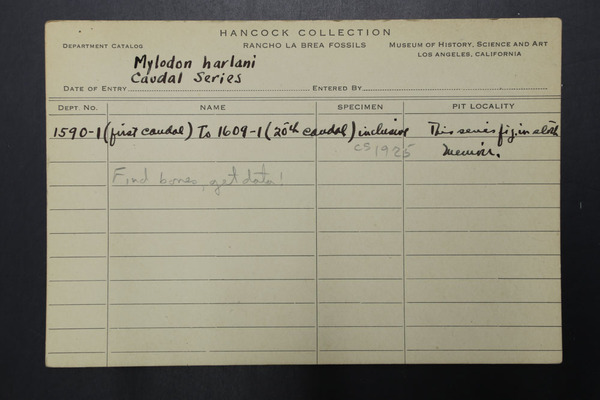 HANCOCK COLLECTION
DEPARTMENT CATALOG RANCHO LA BREA FOSSILS MUSEUM OF HISTORY, SCIENCE AND ART
LOS ANGELES, CALIFORNIA
Mylodon harlani
Caudal Series
DATE OF ENTRY ENTERED BY
DEPT. NO. NAME SPECIMEN PIT LOCALITY
1590-1 (first caudal) To 1609-1 (20th caudal) inclusive This series fig. in sloth
CS 1925 memoir.
Find bones, get data!